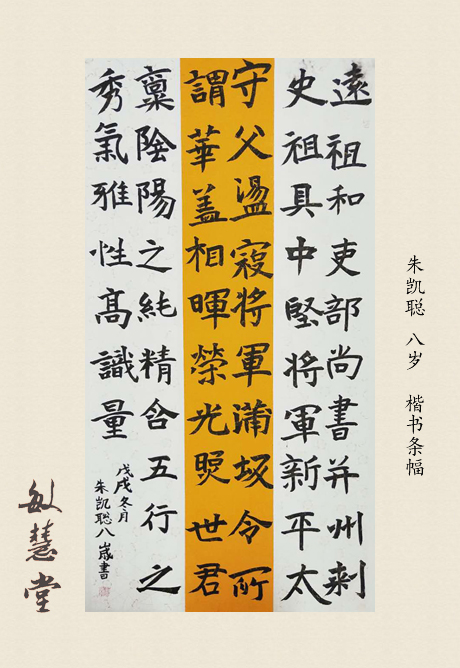 遠祖和吏部尚書并州刺
史祖具中堅將軍新平太
守父盪寇將軍蒲坂令所
謂華盖相暉榮光照世君
稟陰陽之純精含五行之
秀氣雅性髙識量
戊戌冬月
朱凯聪八歲書
朱凯聪 八岁 楷书条幅
敏慧堂